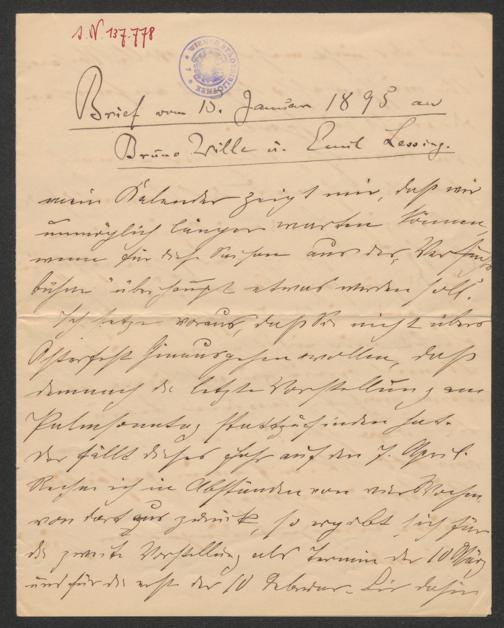 S.N. 137.778
WIENER STADTBIBLIOTHEK
Brief vom 10. Januar 1895 an
Bruno Wille u. Emil Lessing.
mein Kalender zeigt mir, daß wir
unmöglich länger warten können,
wenn für diese Saison aus der „Versuchs
bühne“ überhaupt etwas werden soll.
Ich setze voraus, daß Sie nicht übers
Osterfest hinausgehen wollen, daß
demnach die letzte Vorstellung am
Palmsonntag stattzufinden hat.
Der fällt dieses Jahr auf den 7. April.
Rechne ich in Abständen von vier Wochen
von dort aus zurück, so ergibt sich für
die zweite Vorstellung als Termin der 10 März
und für die erste der 10 Februar. Bis dahin